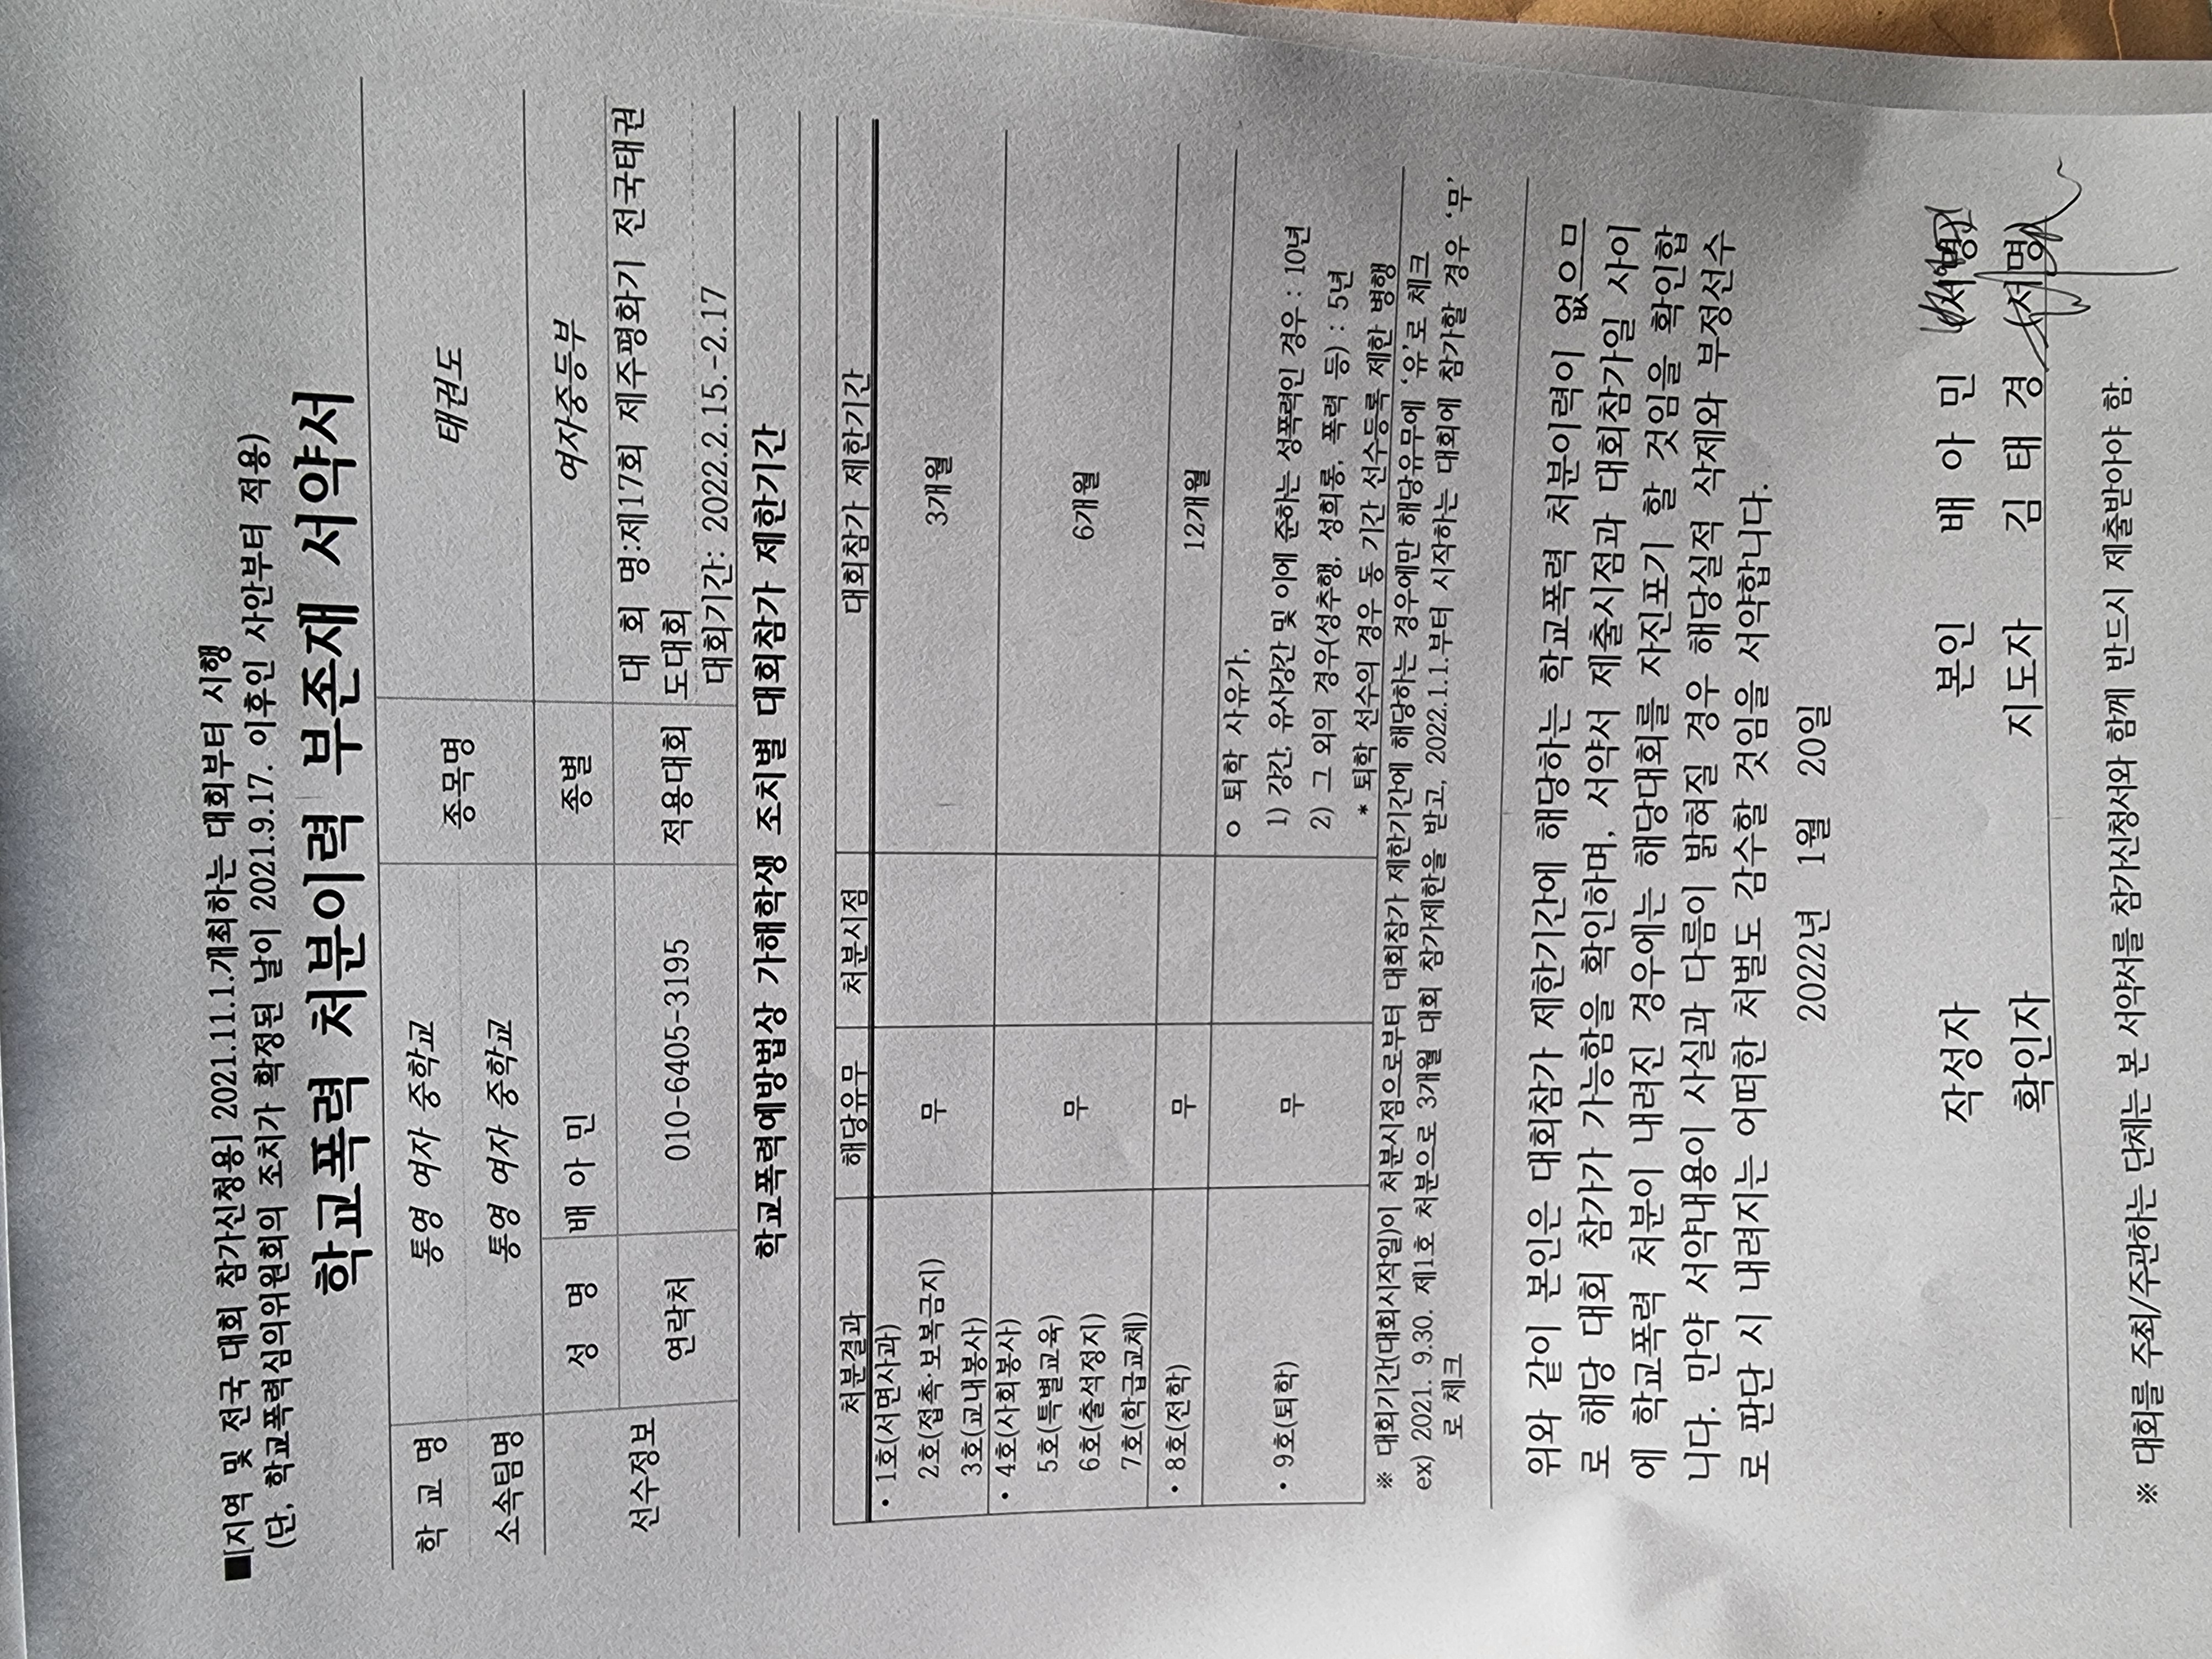 ■[지역 및 전국 대회 참가신청용] 2021.11.1.개최하는 대회부터 시행
(단, 학교폭력심의위원회의 조치가 확정된 날이 2021.9.17. 이후인 사안부터 적용)
학교폭력 처분이력 부존재 서약서
학 교 명 통영 여자 중학교 종목명 태권도
소속팀명 통영 여자 중학교
선수정보 성 명 배 아 민 종별 여자중등부
연락처 010-6405-3195 적용대회 대 회 명:제17회 제주평화기 전국태권
도대회
대회기간: 2022.2.15.-2.17
학교폭력예방법상 가해학생 조치별 대회참가 제한기간
처분결과 해당유무 처분시점 대회참가 제한기간
• 1호(서면사과)
2호(접촉·보복금지) 무 3개월
3호(교내봉사)
• 4호(사회봉사)
5호(특별교육) 무 6개월
6호(출석정지)
7호(학급교체)
• 8호(전학) 무 12개월
• 9호(퇴학) 무 ㅇ 퇴학 사유가,
1) 강간, 유사강간 및 이에 준하는 성폭력인 경우 : 10년
2) 그 외의 경우(성추행, 성희롱, 폭력 등) : 5년
* 퇴학 선수의 경우 동 기간 선수등록 제한 병행
※ 대회기간(대회시작일)이 처분시점으로부터 대회참가 제한기간에 해당하는 경우에만 해당유무에 ‘유’로 체크
ex) 2021. 9.30. 제1호 처분으로 3개월 대회 참가제한을 받고, 2022.1.1.부터 시작하는 대회에 참가할 경우 ‘무’
로 체크
위와 같이 본인은 대회참가 제한기간에 해당하는 학교폭력 처분이력이 없으므
로 해당 대회 참가가 가능함을 확인하며, 서약서 제출시점과 대회참가일 사이
에 학교폭력 처분이 내려진 경우에는 해당대회를 자진포기 할 것임을 확인합
니다. 만약 서약내용이 사실과 다름이 밝혀질 경우 해당실적 삭제와 부정선수
로 판단 시 내려지는 어떠한 처벌도 감수할 것임을 서약합니다.
2022년 1월 20일
작성자 본인 배 아 민 (서명)
확인자 지도자 김 태 경 (서명)
※ 대회를 주최/주관하는 단체는 본 서약서를 참가신청서와 함께 반드시 제출받아야 함.